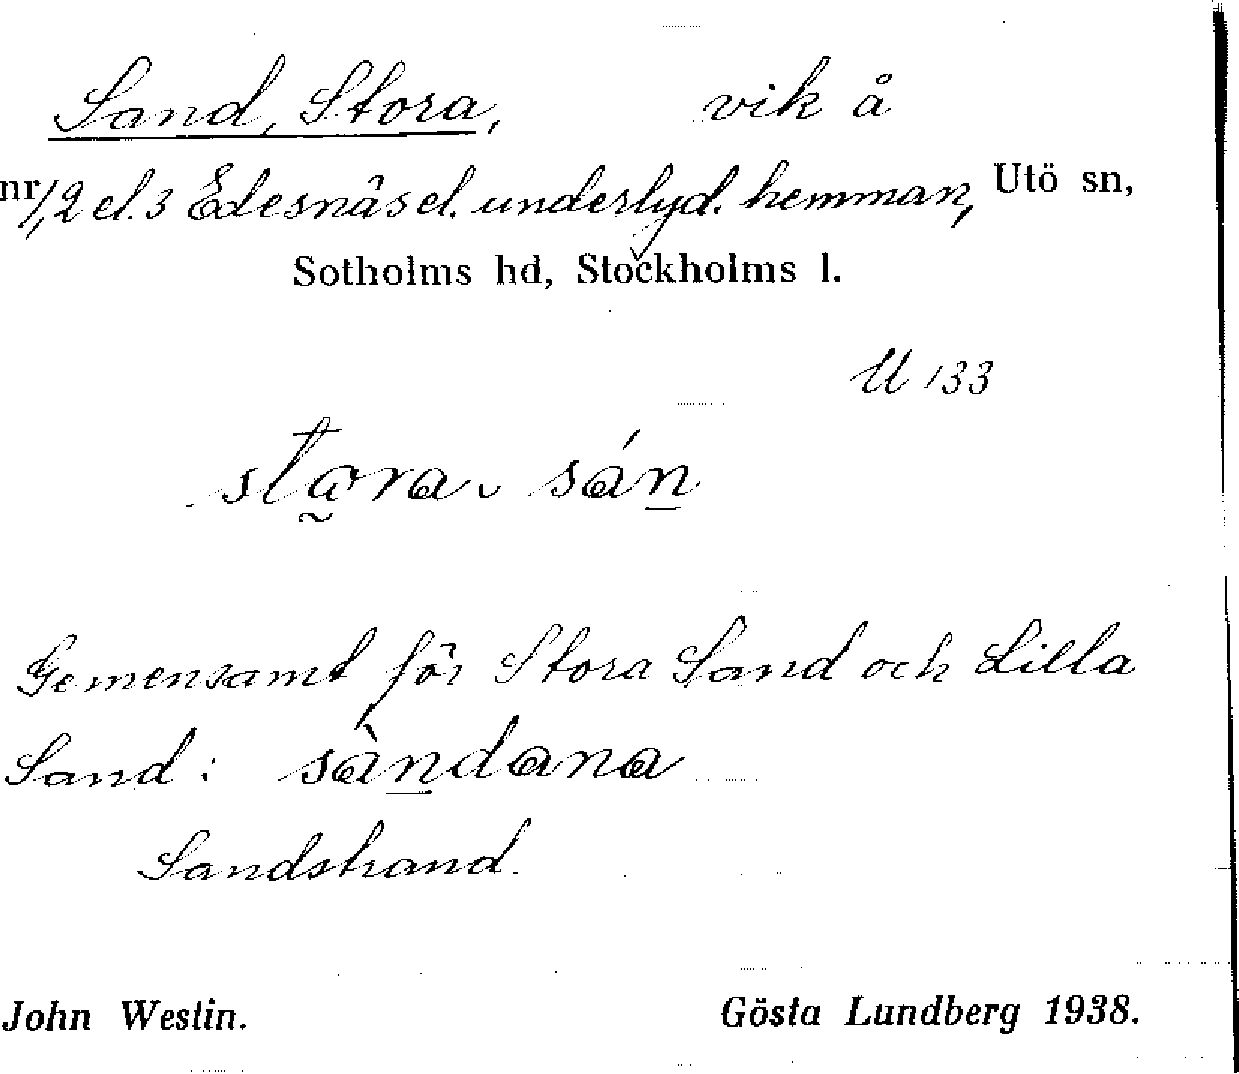 Sand, Stora, vik å
nr 1, 2 el. 3 Edesnäs el. underlyd. hemman, Utö sn,
Sotholms hd, Stockholms l.
U 133
stɑ̰ra sán̲
Gemensamt för Stora Sand och Lilla
Sand: sàn̲dana
Sandstrand.
John Westin. Gösta Lundberg 1938.